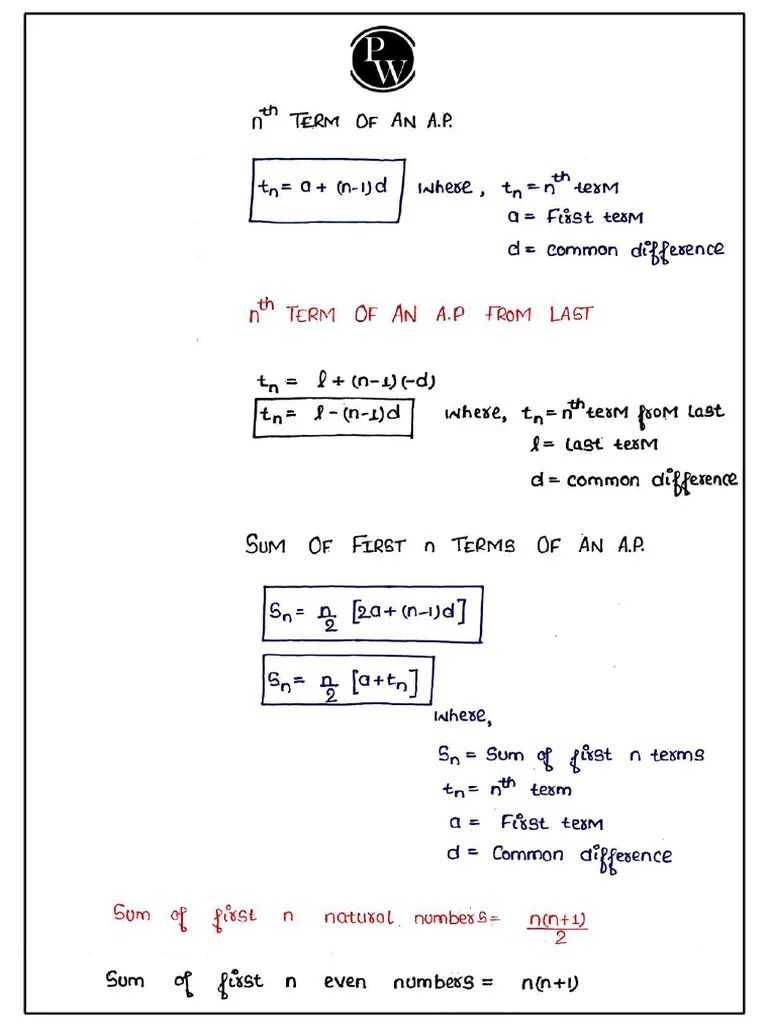 PW
nᵗʰ TERM OF AN A.P.
tₙ = a + (n-1)d where, tₙ = nᵗʰ term
a = First term
d = common difference
nᵗʰ TERM OF AN A.P FROM LAST
tₙ = l + (n-1)(-d)
tₙ = l - (n-1)d where, tₙ = nᵗʰ term from last
l = Last term
d = common difference
SUM OF FIRST n TERMS OF AN A.P.
Sₙ = n/2 [2a + (n-1)d]
Sₙ = n/2 [a + tₙ]
where,
Sₙ = Sum of first n terms
tₙ = nᵗʰ term
a = First term
d = Common difference
Sum of first n natural numbers = n(n+1)/2
Sum of first n even numbers = n(n+1)